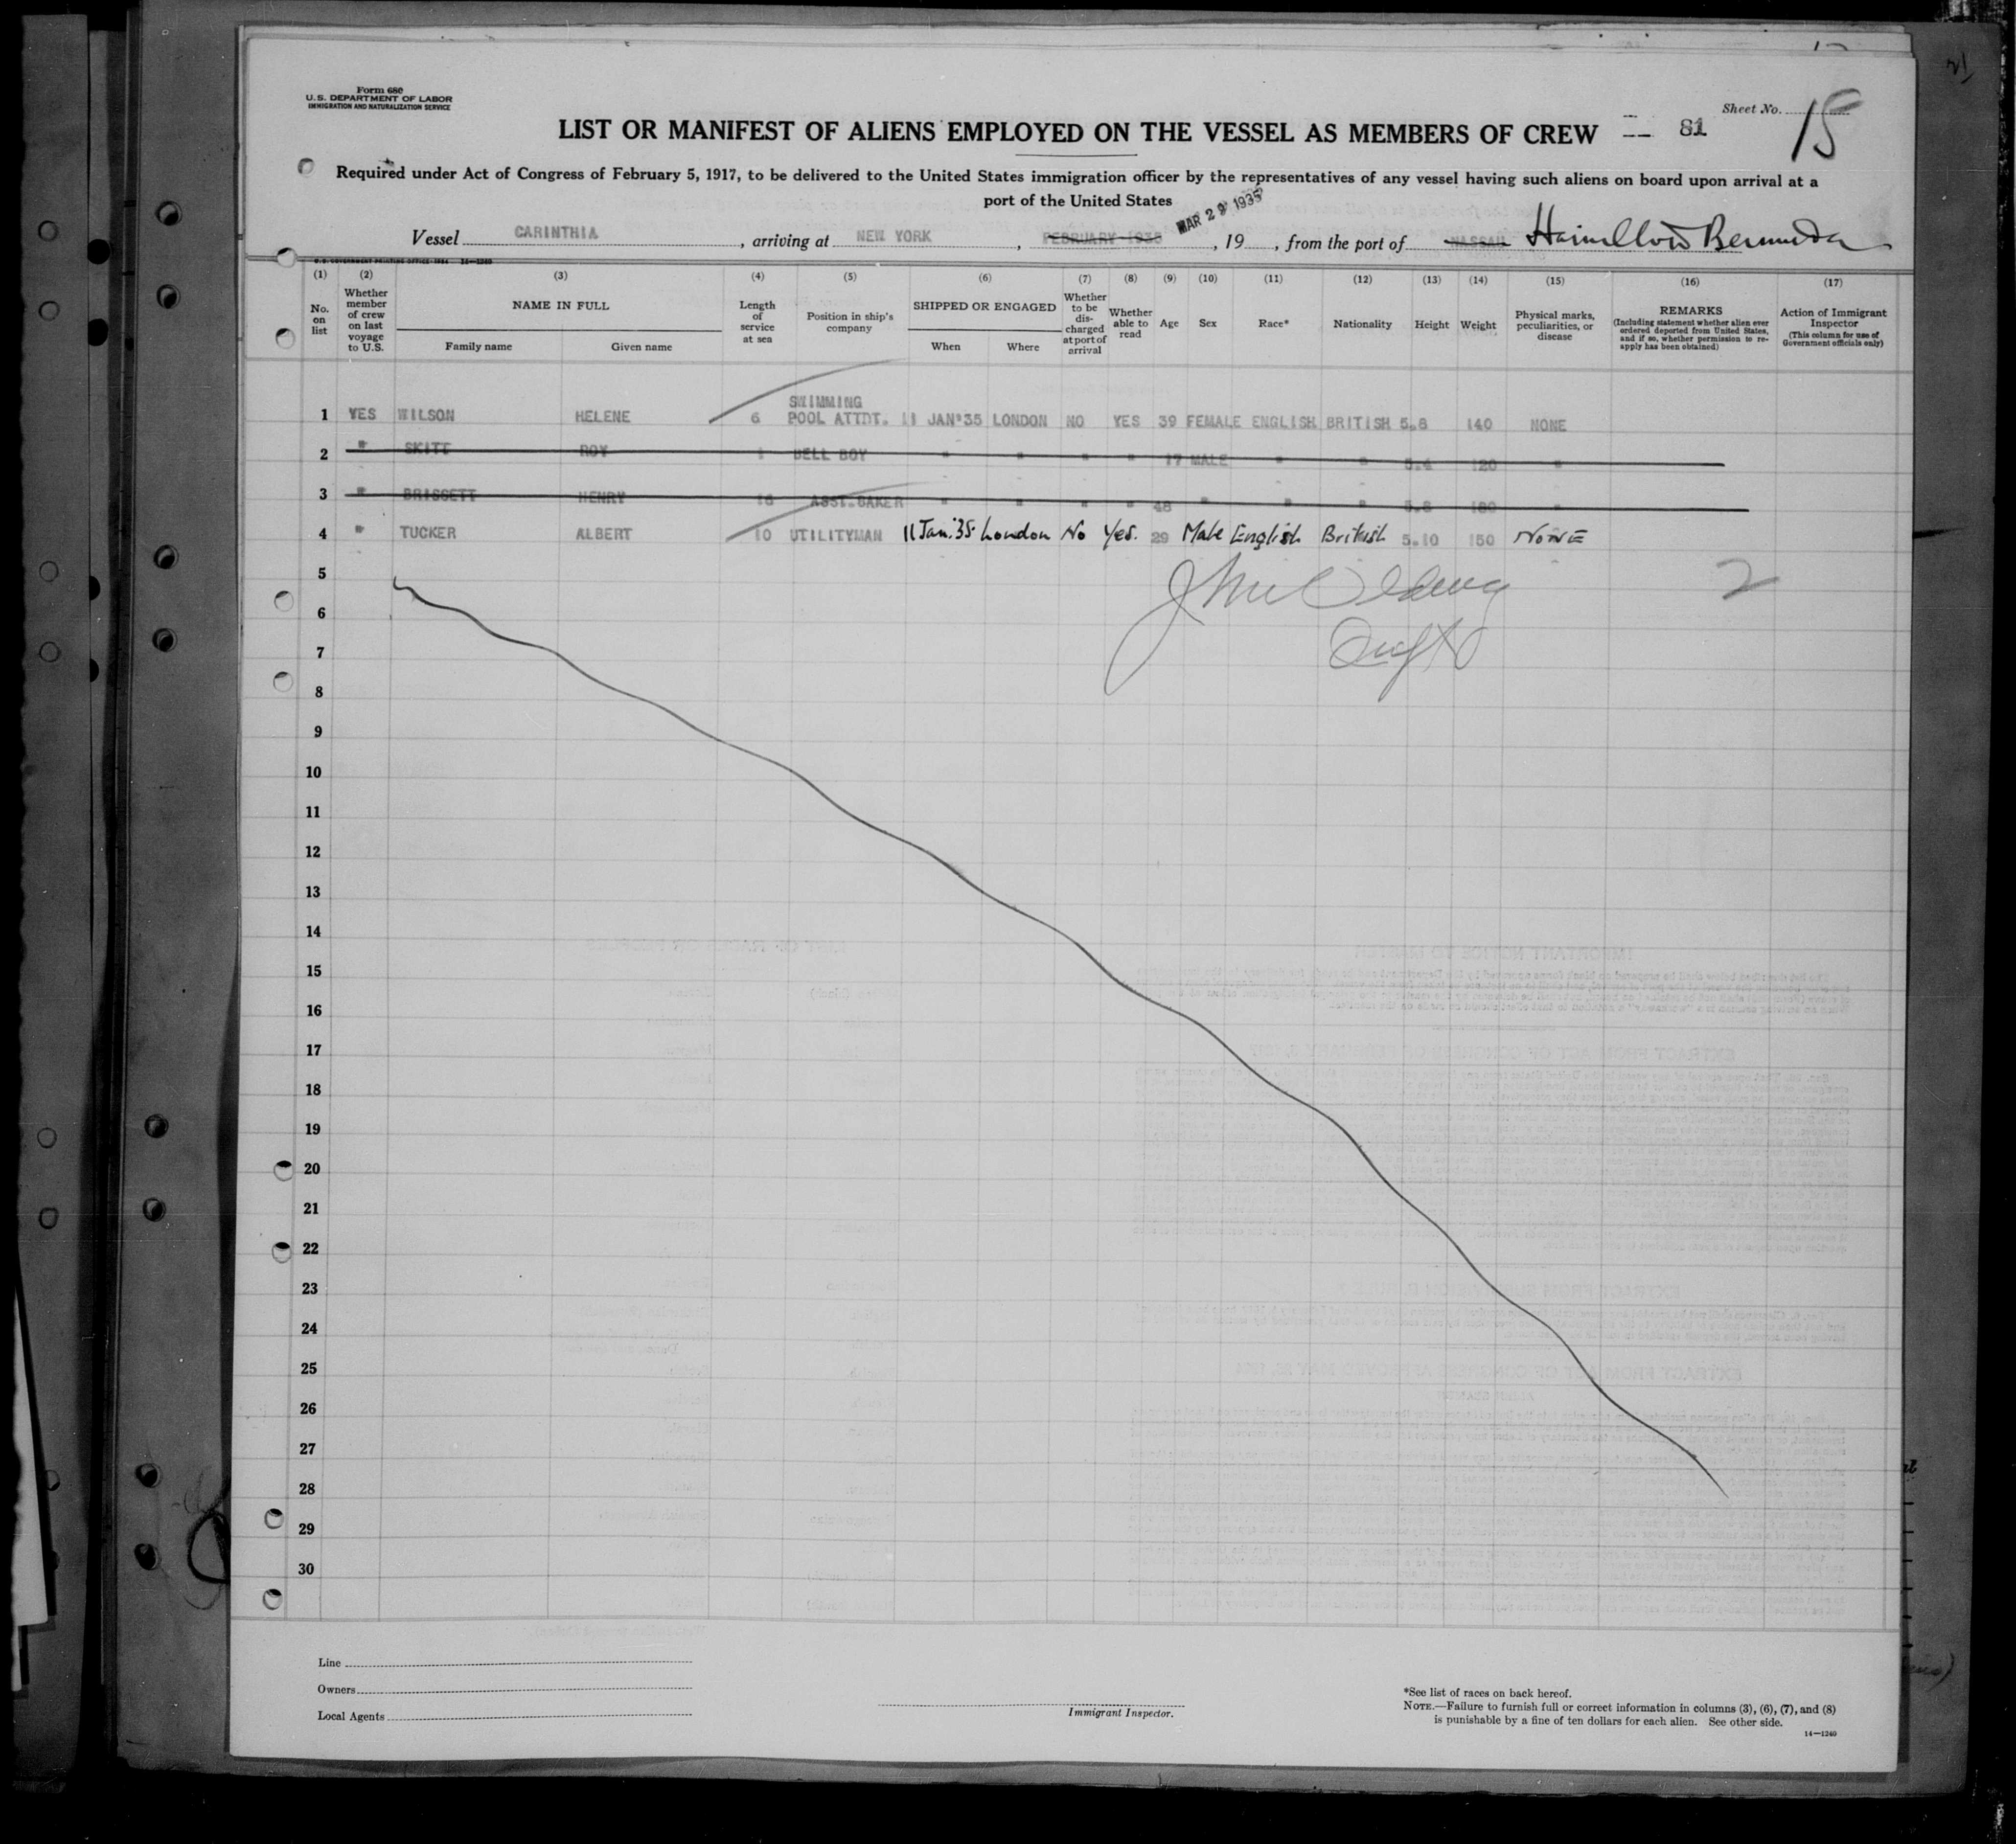 Form 680
U.S. DEPARTMENT OF LABOR
IMMIGRATION AND NATURALIZATION SERVICE
Sheet No. 15
LIST OR MANIFEST OF ALIENS EMPLOYED ON THE VESSEL AS MEMBERS OF CREW 81
Required under Act of Congress of February 5, 1917, to be delivered to the United States immigration officer by the representatives of any vessel having such aliens on board upon arrival at a
port of the United States
MAR 29 1935
Vessel CARINTHIA, arriving at NEW YORK, FEBRUARY 1935, 19, from the port of NASSAU Hamilton Bermuda
(1) (2) (3) (4) (5) (6) (7) (8) (9) (10) (11) (12) (13) (14) (15) (16) (17)
No. on list
Whether member of crew on last voyage to U.S.
NAME IN FULL
Family name
Given name
Length of service at sea
Position in ship's company
SHIPPED OR ENGAGED
When
Where
Whether to be discharged at port of arrival
Whether able to read
Age
Sex
Race*
Nationality
Height
Weight
Physical marks, peculiarities, or disease
REMARKS
(Including statement whether alien ever ordered deported from United States, and if so, whether permission to re-apply has been obtained)
Action of Immigrant Inspector
(This column for use of Government officials only)
1 YES WILSON HELENE 6 SWIMMING POOL ATTDT. 11 JAN'35 LONDON NO YES 39 FEMALE ENGLISH BRITISH 5.8 140 NONE
2 " SKITT ROY 1 BELL BOY " " " " 17 MALE " " 5.4 120 "
3 " BRISSETT HENRY 16 ASST.BAKER " " " " 48 " " " 5.8 180
4 " TUCKER ALBERT 10 UTILITYMAN 11 Jan.'35 London No Yes. 29 Male English British 5.10 150 NONE
5
2
6
7
8
9
10
11
12
13
14
15
16
17
18
19
20
21
22
23
24
25
26
27
28
29
30
Line
Owners
Local Agents
Immigrant Inspector.
*See list of races on back hereof.
NOTE.—Failure to furnish full or correct information in columns (3), (6), (7), and (8)
is punishable by a fine of ten dollars for each alien. See other side.
14—1240